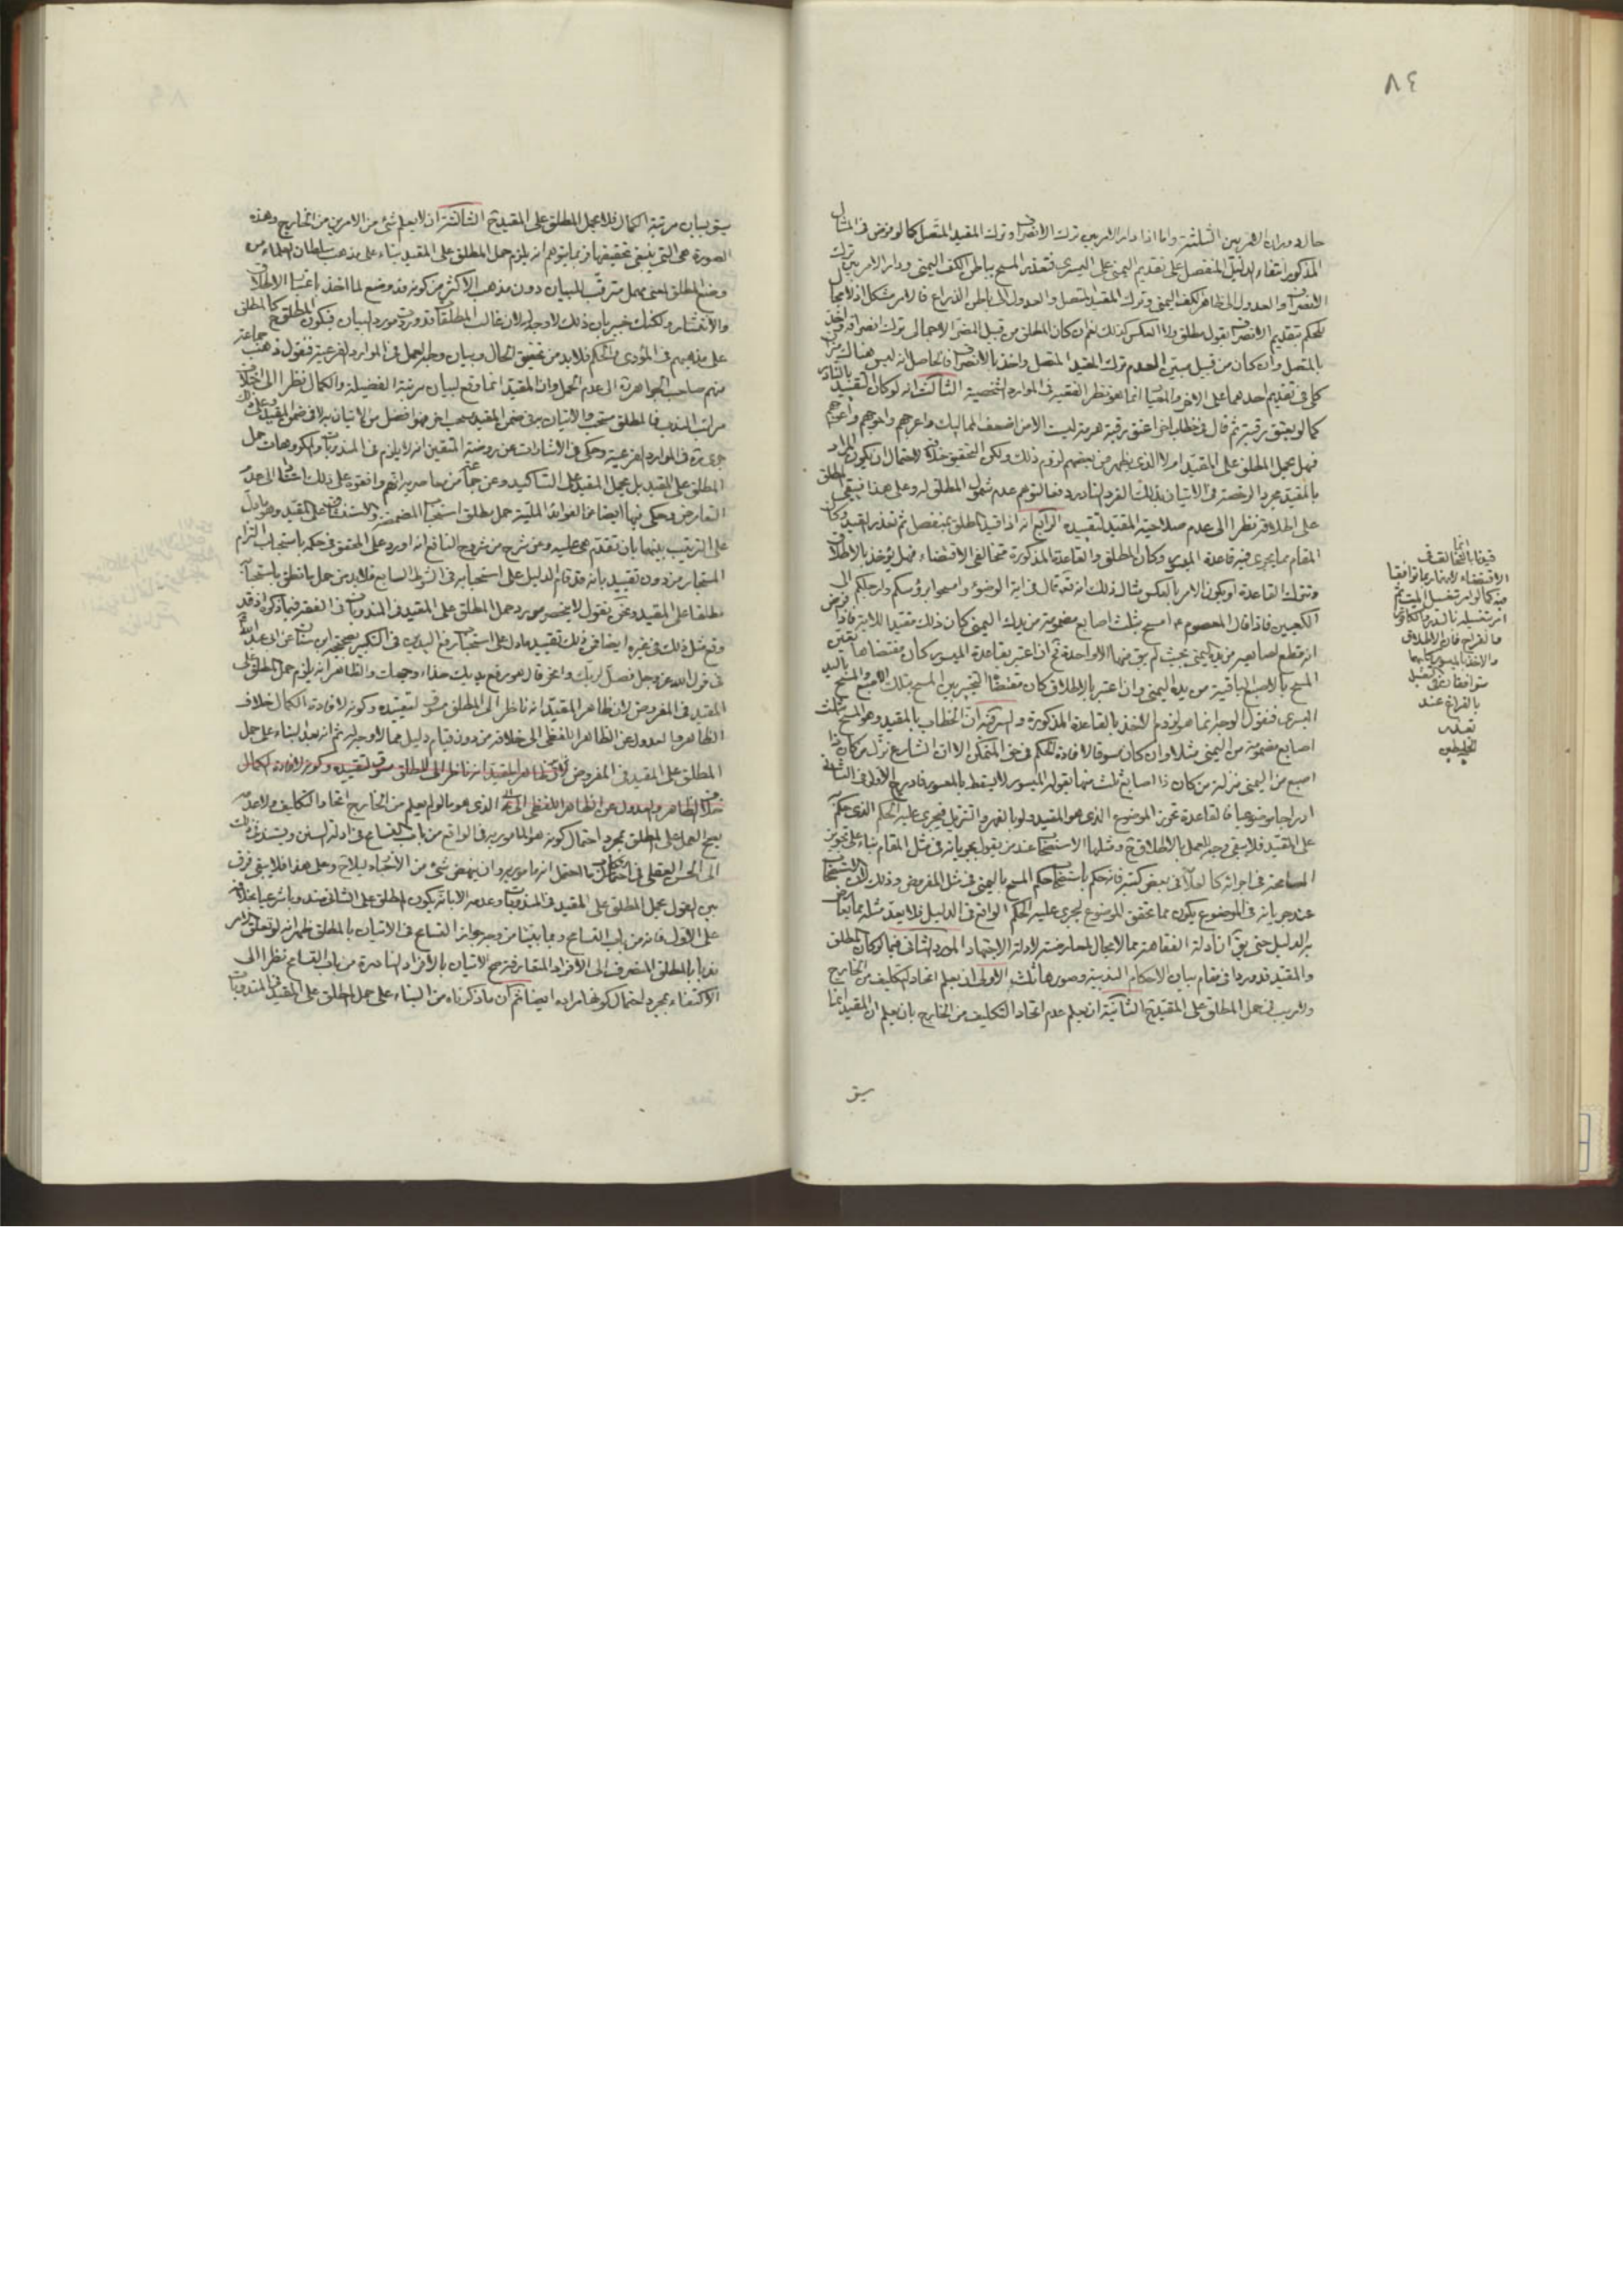 ٨٤
حال دوران الامر بين الثلثة واما اذا دار الامر بين ترك الانصراف وترك المقيد المتصل كما لو فرض فى المثال
المذكور انتفاء الدليل المنفصل على تقديم اليمنى على اليسرى فتعذر المسح بباطن الكف اليمنى ودار الامر بين ترك
الانصراف والعدول الى ظاهر الكف اليمنى وترك المقيد المتصل والعدول الى باطن الذراع فالامر مشكل اذ لا مجال
للحكم بتقديم الانصراف بقول مطلق ولا العكس كذلك نعم ان كان المطلق من قبيل المضر الاجمالى ترك انصرافه واخذ
بالمتصل وان كان من قبيل مبين العدم ترك المقيد المتصل واخذ بالانصراف فالحاصل انه ليس هنا
كلى فى تقديم احدهما على الاخر والمعيار انما هو نظر الفقيه فى الموارد الشخصية الثالث انه لو كان التقييد بالنادر
كما لو يعتق رقبة ثم قال فى خطاب اخر اعتق رقبة هرمة ليست الا من اضعف المماليك واعرجهم
فهل يحمل المطلق على المقيد ام لا الذى يظهر من بعضهم لزوم ذلك ولكن التحقيق خلافه لاحتمال ان يكون المراد
بالمقيد مجرد الرخصة فى الاتيان بذلك الفرد النادر دفعا لتوهم عدم شمول المطلق له وعلى هذا فيبقى المطلق
على اطلاقه نظرا الى عدم صلاحية المقيد لتقييده الرابع انه اذا قيد المطلق بمنفصل ثم تعذر القيد وكان
المقام مما يجرى فيه قاعدة الميسور وكان المطلق والقاعدة المذكورة متخالفى الاقتضاء فهل يؤخذ بالاطلاق
وتترك القاعدة او يكون الامر بالعكس مثال ذلك انه تعالى قال فى اية الوضوء وامسحوا برؤسكم وارجلكم الى
الكعبين فاذا قال المعصوم ع امسح بثلث اصابع مضمومة من يدك اليمنى كان ذلك مقيدا للاية فاذا فرض
انه قطع اصابعه من يد اليمنى بحيث لم يبق منها الا واحدة ثم ان اعتبر بقاعدة الميسور كان مقتضاها تعين
المسح بالاصبع الباقية من يده اليمنى وان اعتبر بالاطلاق كان مقتضاه التخيير بين المسح بتلك الاصبع والمسح باليد
اليسرى فنقول الوجه انما هو لزوم الاخذ بالقاعدة المذكورة والسر فيه ان الخطاب بالمقيد وهو المسح بثلث
اصابع مضمومة من اليمنى مثلا وان كان مسوقا لافادة الحكم فى حق المتمكن الا ان الشارع نزل من كان ذا
اصبع من اليمنى منزلة من كان ذا اصابع ثلث منها بقوله الميسور لا يسقط بالمعسور فادرج الاول فى الثانى
ادراجا موضوعيا فالقاعدة تحرز الموضوع الذى هو المقيد ولو بالقهر والتنزيل فيجرى عليه الحكم الذى حكم
على المقيد فلا يبقى وجه للعمل بالاطلاق ح ومثلها الاستصحاب عند من يقول بجريانه فى مثل المقام بناء على تجويز
المسامحة فى اجرائه كالعلامة فى بعض كتبه فانه حكم باستصحاب حكم المسح باليمنى فى مثل المفروض وذلك لان الاستصحاب
عند جريانه فى الموضوع يكون مما يحقق الموضوع ليجرى عليه الحكم الواقع فى الدليل فلا يعد مثله مما يعارض
به الدليل حتى يق ان ادلة الفقاهة مما لا مجال لمعارضته لادلة الاجتهاد المورد الثانى فيما لو كان المطلق
والمقيد قد وردا فى مقام بيان الاحكام الندبية وصورها ثلث الاولى ان يعلم اتحاد التكليف من الخارج
ولا ريب فى حمل المطلق على المقيد ح الثانية ان يعلم عدم اتحاد التكليف من الخارج بان يعلم ان المقيد انما
سيق
انما
قيدنا بالتخالف فى
الاقتضاء لانه ربما توافقا
فيه كما لو امر بغسل الميت ثم
امر بتغسيله بالسدر والكافور
ماء القراح فان الاطلاق
والاخذ بالميسور كليهما
متوافقان فى الغسل
بالقراح عند
تعذر
الخليطين
سيق لبيان مرتبة الكمال فلا يحمل المطلق على المقيد ح الثالثة ان لا يعلم شئ من الامرين من الخارج وهذه
الصورة هى التى ينبغى تحقيقها فربما يتوهم انه يلزم حمل المطلق على المقيد بناء على مذهب سلطان العلماء من
وضع المطلق لمعنى مهمل مترقب للبيان دون مذهب الاكثر من كونه قد وضع لما اخذ باعتبار الاطلاق
والانتشار ولكنك خبير بان ذلك لا وجه له لان غالب المطلقات قد وردت مورد البيان فيكون المطلق ح كالمطلق
على مذهبهم فى المؤدى والحكم فلا بد من تحقيق الحال وبيان وجه الحمل فى الموارد الفرعية فنقول ذهب جماعة
منهم صاحب الجواهر ره الى عدم الحمل وان المقيد انما وقع لبيان مرتبة الفضيلة والكمال نظرا الى اختلاف
مراتب الندب فالمطلق مستحب والاتيان به فى ضمن المقيد مستحب اخر فهو افضل من الاتيان به لا فى ضمن المقيد وعلى ذلك
جرى ره فى الموارد الفرعية وحكى فى الاشارات عن روضة المتقين انه لا يلزم فى المندوبات والمكروهات حمل
المطلق على المقيد بل يحمل المقيد على التاكيد وعن جماعة من معاصريه انهم وافقوه على ذلك استنادا الى عدم
التعارض وحكى فيها ايضا عن الفوائد الملية حمل مطلق استحباب المضمضة والاستنشاق على المقيد وهو ما دل
على الترتيب بينهما بان تقدم هى عليه وعن شرح من شروح النافع انه اورد على المحقق فى حكمه باستحباب التزام
المستجار من دون تقييد بانه قد قام الدليل على استحبابه فى الشوط السابع فلا بد من حمل ما نطق باستحبابه
مطلقا على المقيد ونحن نقول لا ينحصر مورد حمل المطلق على المقيد فى المندوبات فى الفقه فيما ذكر اذ قد
وقع مثل ذلك فى غيره ايضا فمن ذلك تقييد ما دل على استحباب رفع اليدين فى التكبير بصحيحة ابن سنان عن ابى عبد الله ع
فى قول الله عز وجل فصل لربك وانحر قال هو رفع يديك حذاء وجهك والظاهر انه يلزم حمل المطلق على
المقيد فى المفروض لان ظاهر المقيد انه ناظر الى المطلق مسوق لتقييده وكونه لافادة الكمال خلاف
الظاهر والعدول عن الظاهر اللفظى الى خلافه من دون قيام دليل مما لا وجه له ثم انه بعد البناء على حمل
المطلق على المقيد فى المفروض لان ظاهر المقيد انه ناظر الى المطلق مسوق لتقييده وكونه لافادة الكمال
خلاف الظاهر والعدول عن الظاهر اللفظى الى الذى هو ما لو لم يعلم من الخارج اتحاد التكليف ولا عدمه
يصح العمل على المطلق بمجرد احتمال كونه هو المامور به فى الواقع من باب التسامح فى ادلة السنن ويستند فى ذلك
الى الحسن العقلى فى احتمال ما احتمل انه مامور به وان ينهض شئ من الاخبار بذلك ح وعلى هذا فلا يبقى فرق
بين القول بحمل المطلق على المقيد فى المندوبات وعدمه الا بانه يكون المطلق على الثانى مندوبا شرعيا بخلافه
على الاول فانه من باب التسامح ومما بينا من وجه جواز التسامح فى الاتيان بالمطلق ظهر انه لو تعلق امر
ندبا بالمطلق المنصرف الى الافراد المتعارفة صح الاتيان بالافراد النادرة من باب التسامح نظرا الى
الاكتفاء بمجرد احتمال كونها مرادة ايضا ثم ان ما ذكرناه من البناء على حمل المطلق على المقيد فى المندوبات